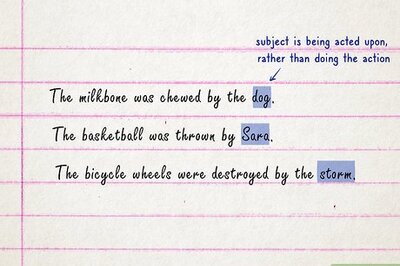 subject is being acted upon,
rather than doing the action
The milkbone was chewed by the dog.
The basketball was thrown by Sara.
The bicycle wheels were destroyed by the storm.